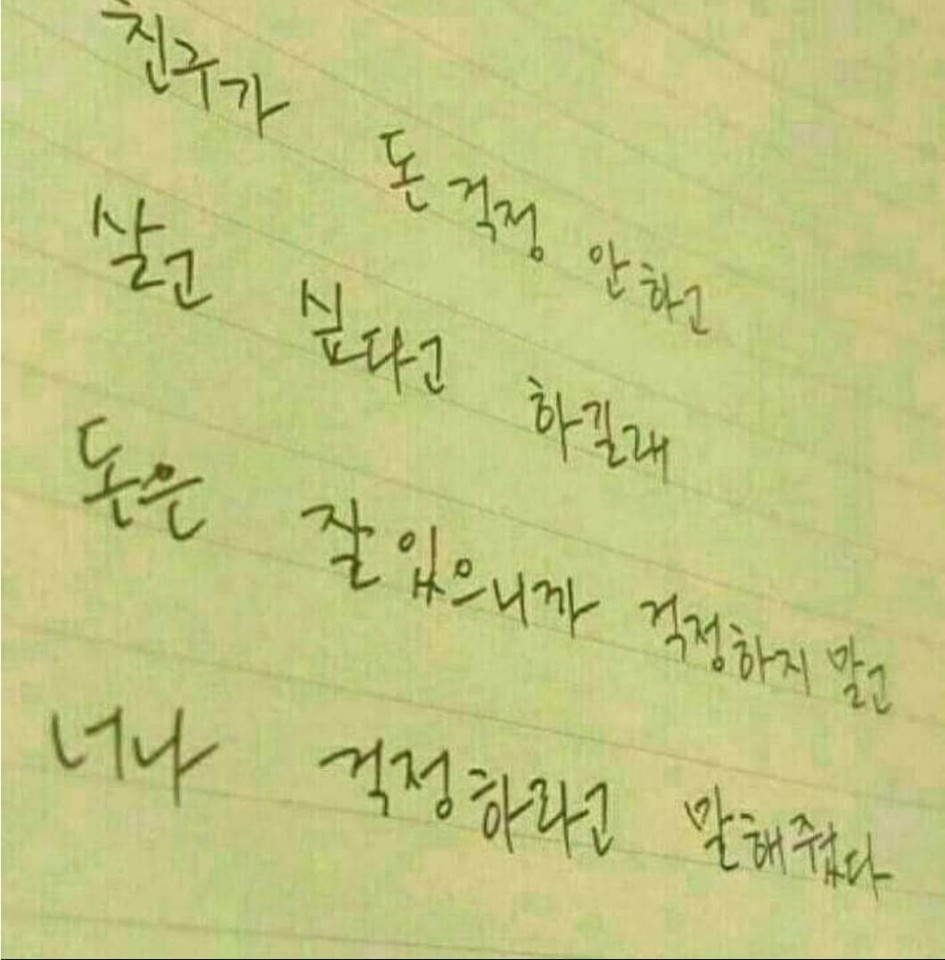 친구가 돈 걱정 안하고
살고 싶다고 하길래
돈은 잘 있으니까 걱정하지 말고
너나 걱정하라고 말해줬다